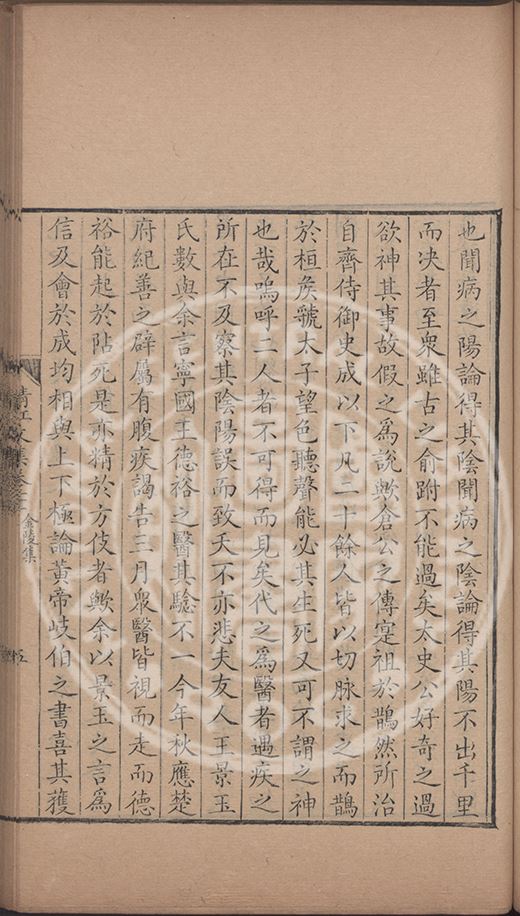 也聞病之陽論得其陰聞病之陰論得其陽不出千里
而决者至衆雖古之俞跗不能過矣太史公好奇之過
欲神其事故假之為說歟倉公之傳寔祖於鵲然所治
自齊侍御史成以下凡二十餘人皆以切脉求之而鵲
於桓矦虢太子望色聽聲能必其生死又可不謂之神
也哉嗚呼二人者不可得而見矣代之為醫者遇疾之
所在不及察其陰陽誤而致夭不亦悲夫友人王景玉
氏數與余言寧國王德裕之醫其驗不一今年秋應楚
府紀善之辟屬有腹疾謁告三月衆醫皆視而走而德
裕能起於阽死是亦精於方伎者歟余以景玉之言為
信及會於成均相與上下極論黃帝岐伯之書喜其獲
清江文集卷
金陵集